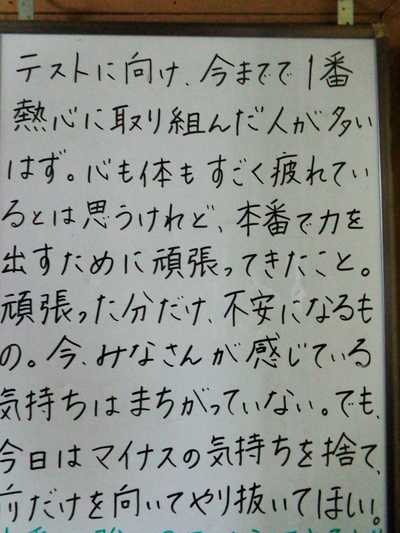 テストに向け、今までで1番
熱心に取り組んだ人が多い
はず。心も体もすごく疲れてい
るとは思うけれど、本番で力を
出すために頑張ってきたこと。
頑張った分だけ、不安になるも
の。今、みなさんが感じている
気持ちはまちがっていない。でも、
今日はマイナスの気持ちを捨て、
前だけを向いてやり抜いてほしい。